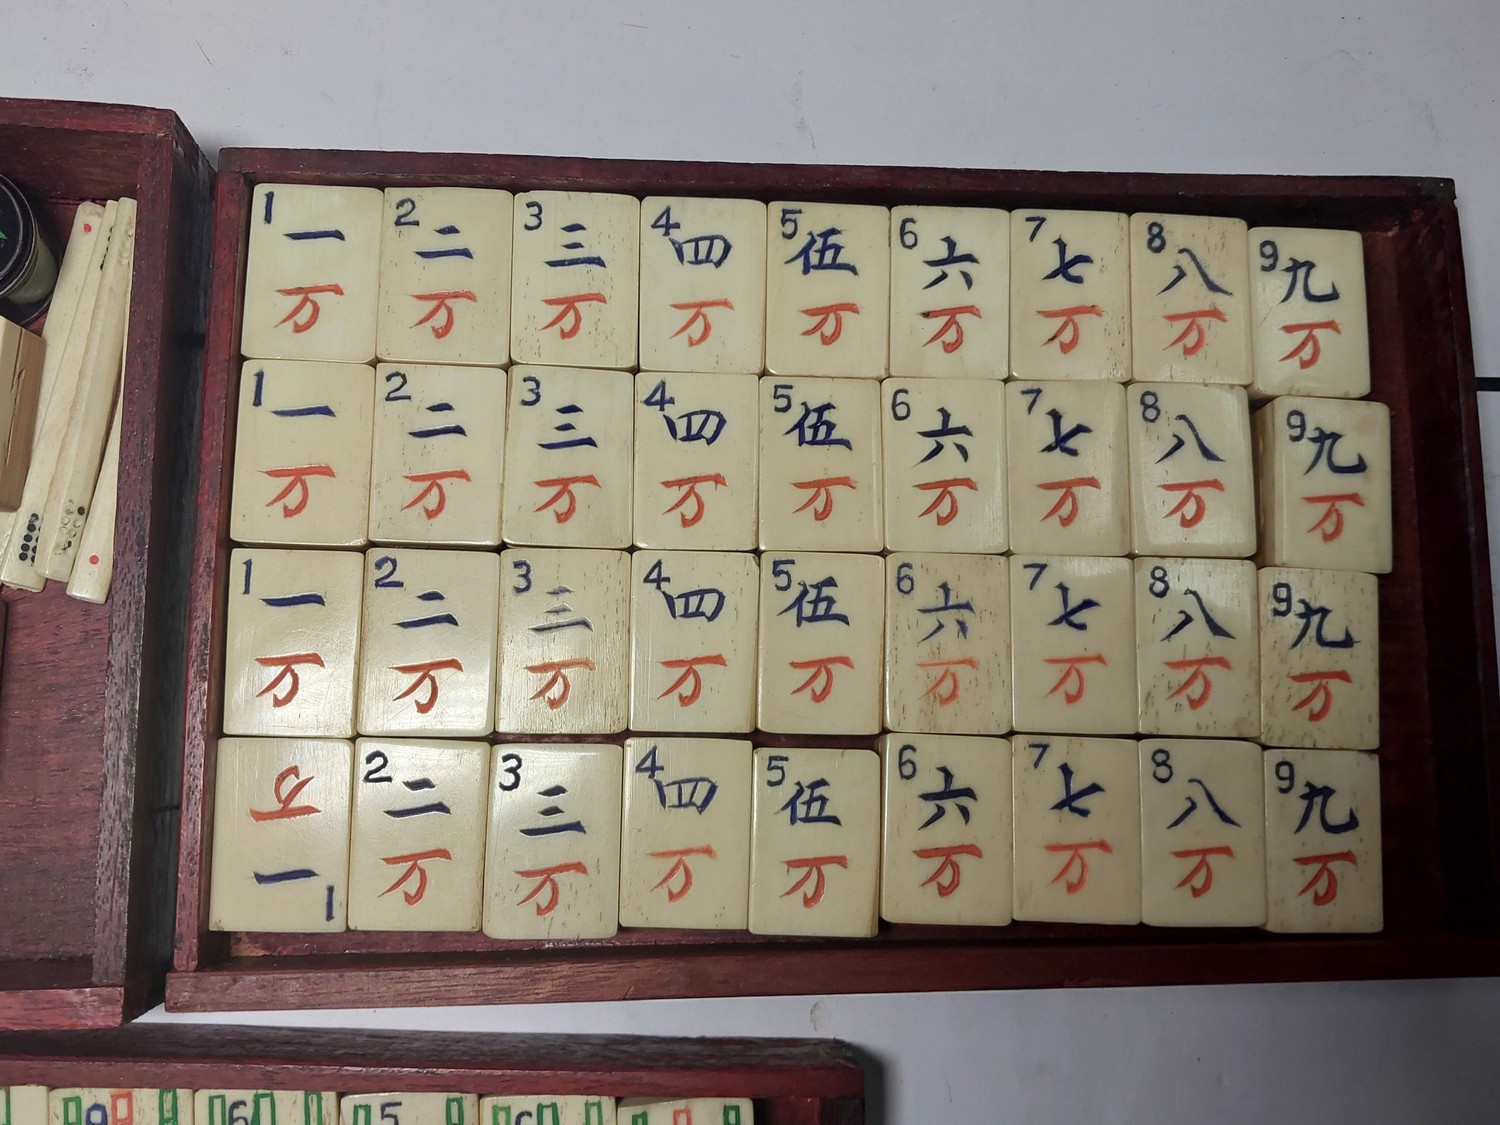 1 2 3 4 5 6 7 8 9
一 二 三 四 伍 六 七 八 九
万 万 万 万 万 万 万 万 万
1 2 3 4 5 6 7 8 9
一 二 三 四 伍 六 七 八 九
万 万 万 万 万 万 万 万 万
1 2 3 4 5 6 7 8 9
一 二 三 四 伍 六 七 八 九
万 万 万 万 万 万 万 万 万
1 2 3 4 5 6 7 8 9
一 二 三 四 伍 六 七 八 九
万 万 万 万 万 万 万 万 万
9 6 5